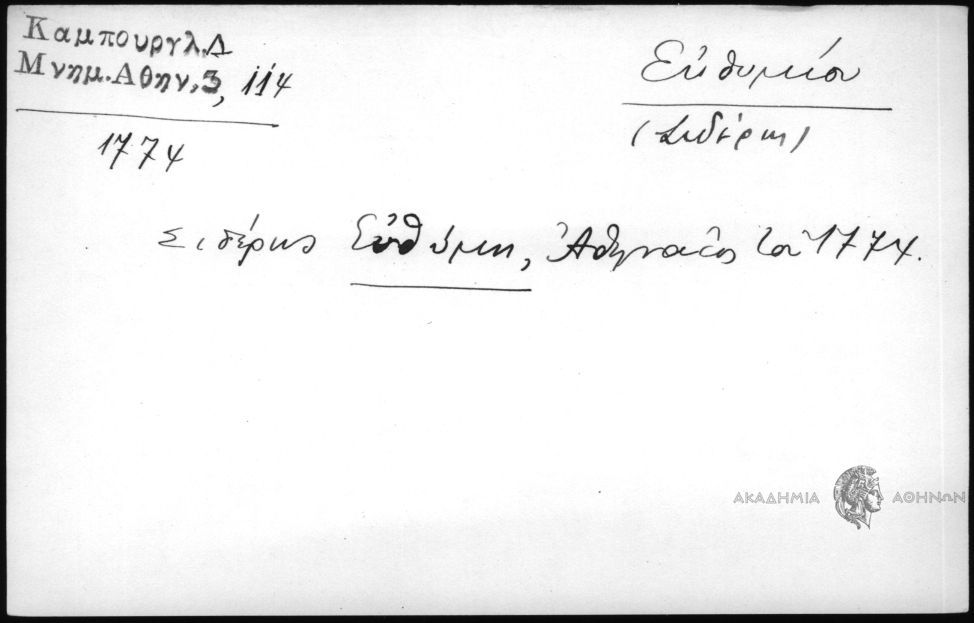 Καμπουργλ.Δ
Μνημ.Αθην.3, 114
1774
Εὐθυμίου
(Σιδέρης)
Σιδέρης Εὐθύμη, Ἀθηναῖος τοῦ 1774.
ΑΚΑΔΗΜΙΑ ΑΘΗΝΩΝ